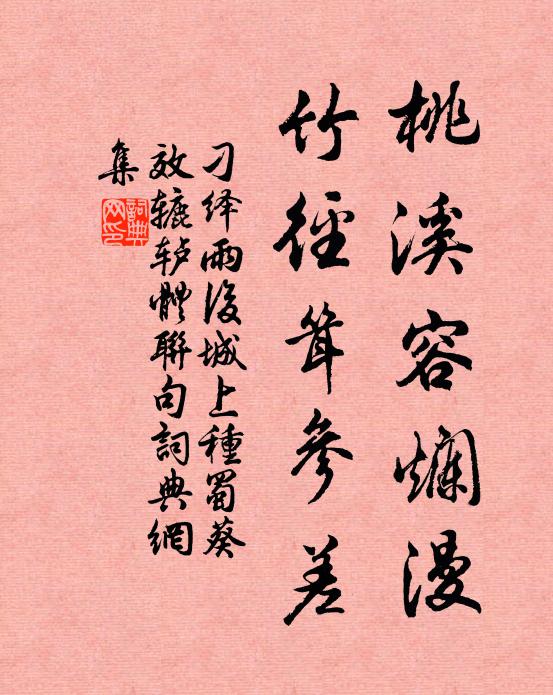 桃溪容爛漫
竹徑茸參差
刁绎雨後城上種蜀葵
效辘轳體聯句詞典網
集
詞典
网印